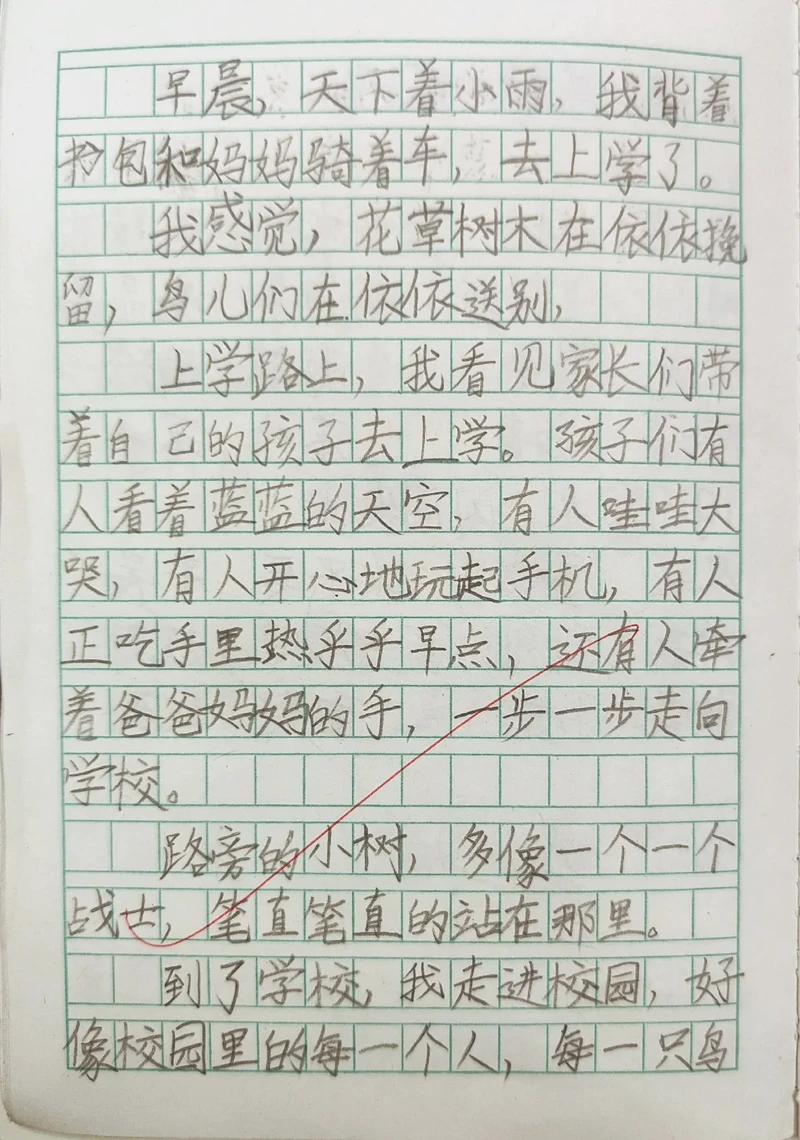 早晨，天下着小雨，我背着
包和妈妈骑着车，去上学了。
我感觉，花草树木在依依挽
留，鸟儿们在依依送别，
上学路上，我看见家长们带
着自己的孩子去上学。孩子们有
人看着蓝蓝的天空，有人哇哇大
哭，有人开心地玩起手机，有人
正吃手里热乎乎早点，还有人牵
着爸爸妈妈的手，一步一步走向
学校。
路旁的小树，多像一个一个
战士，笔直笔直的站在那里。
到了学校，我走进校园，好
像校园里的每一个人，每一只鸟